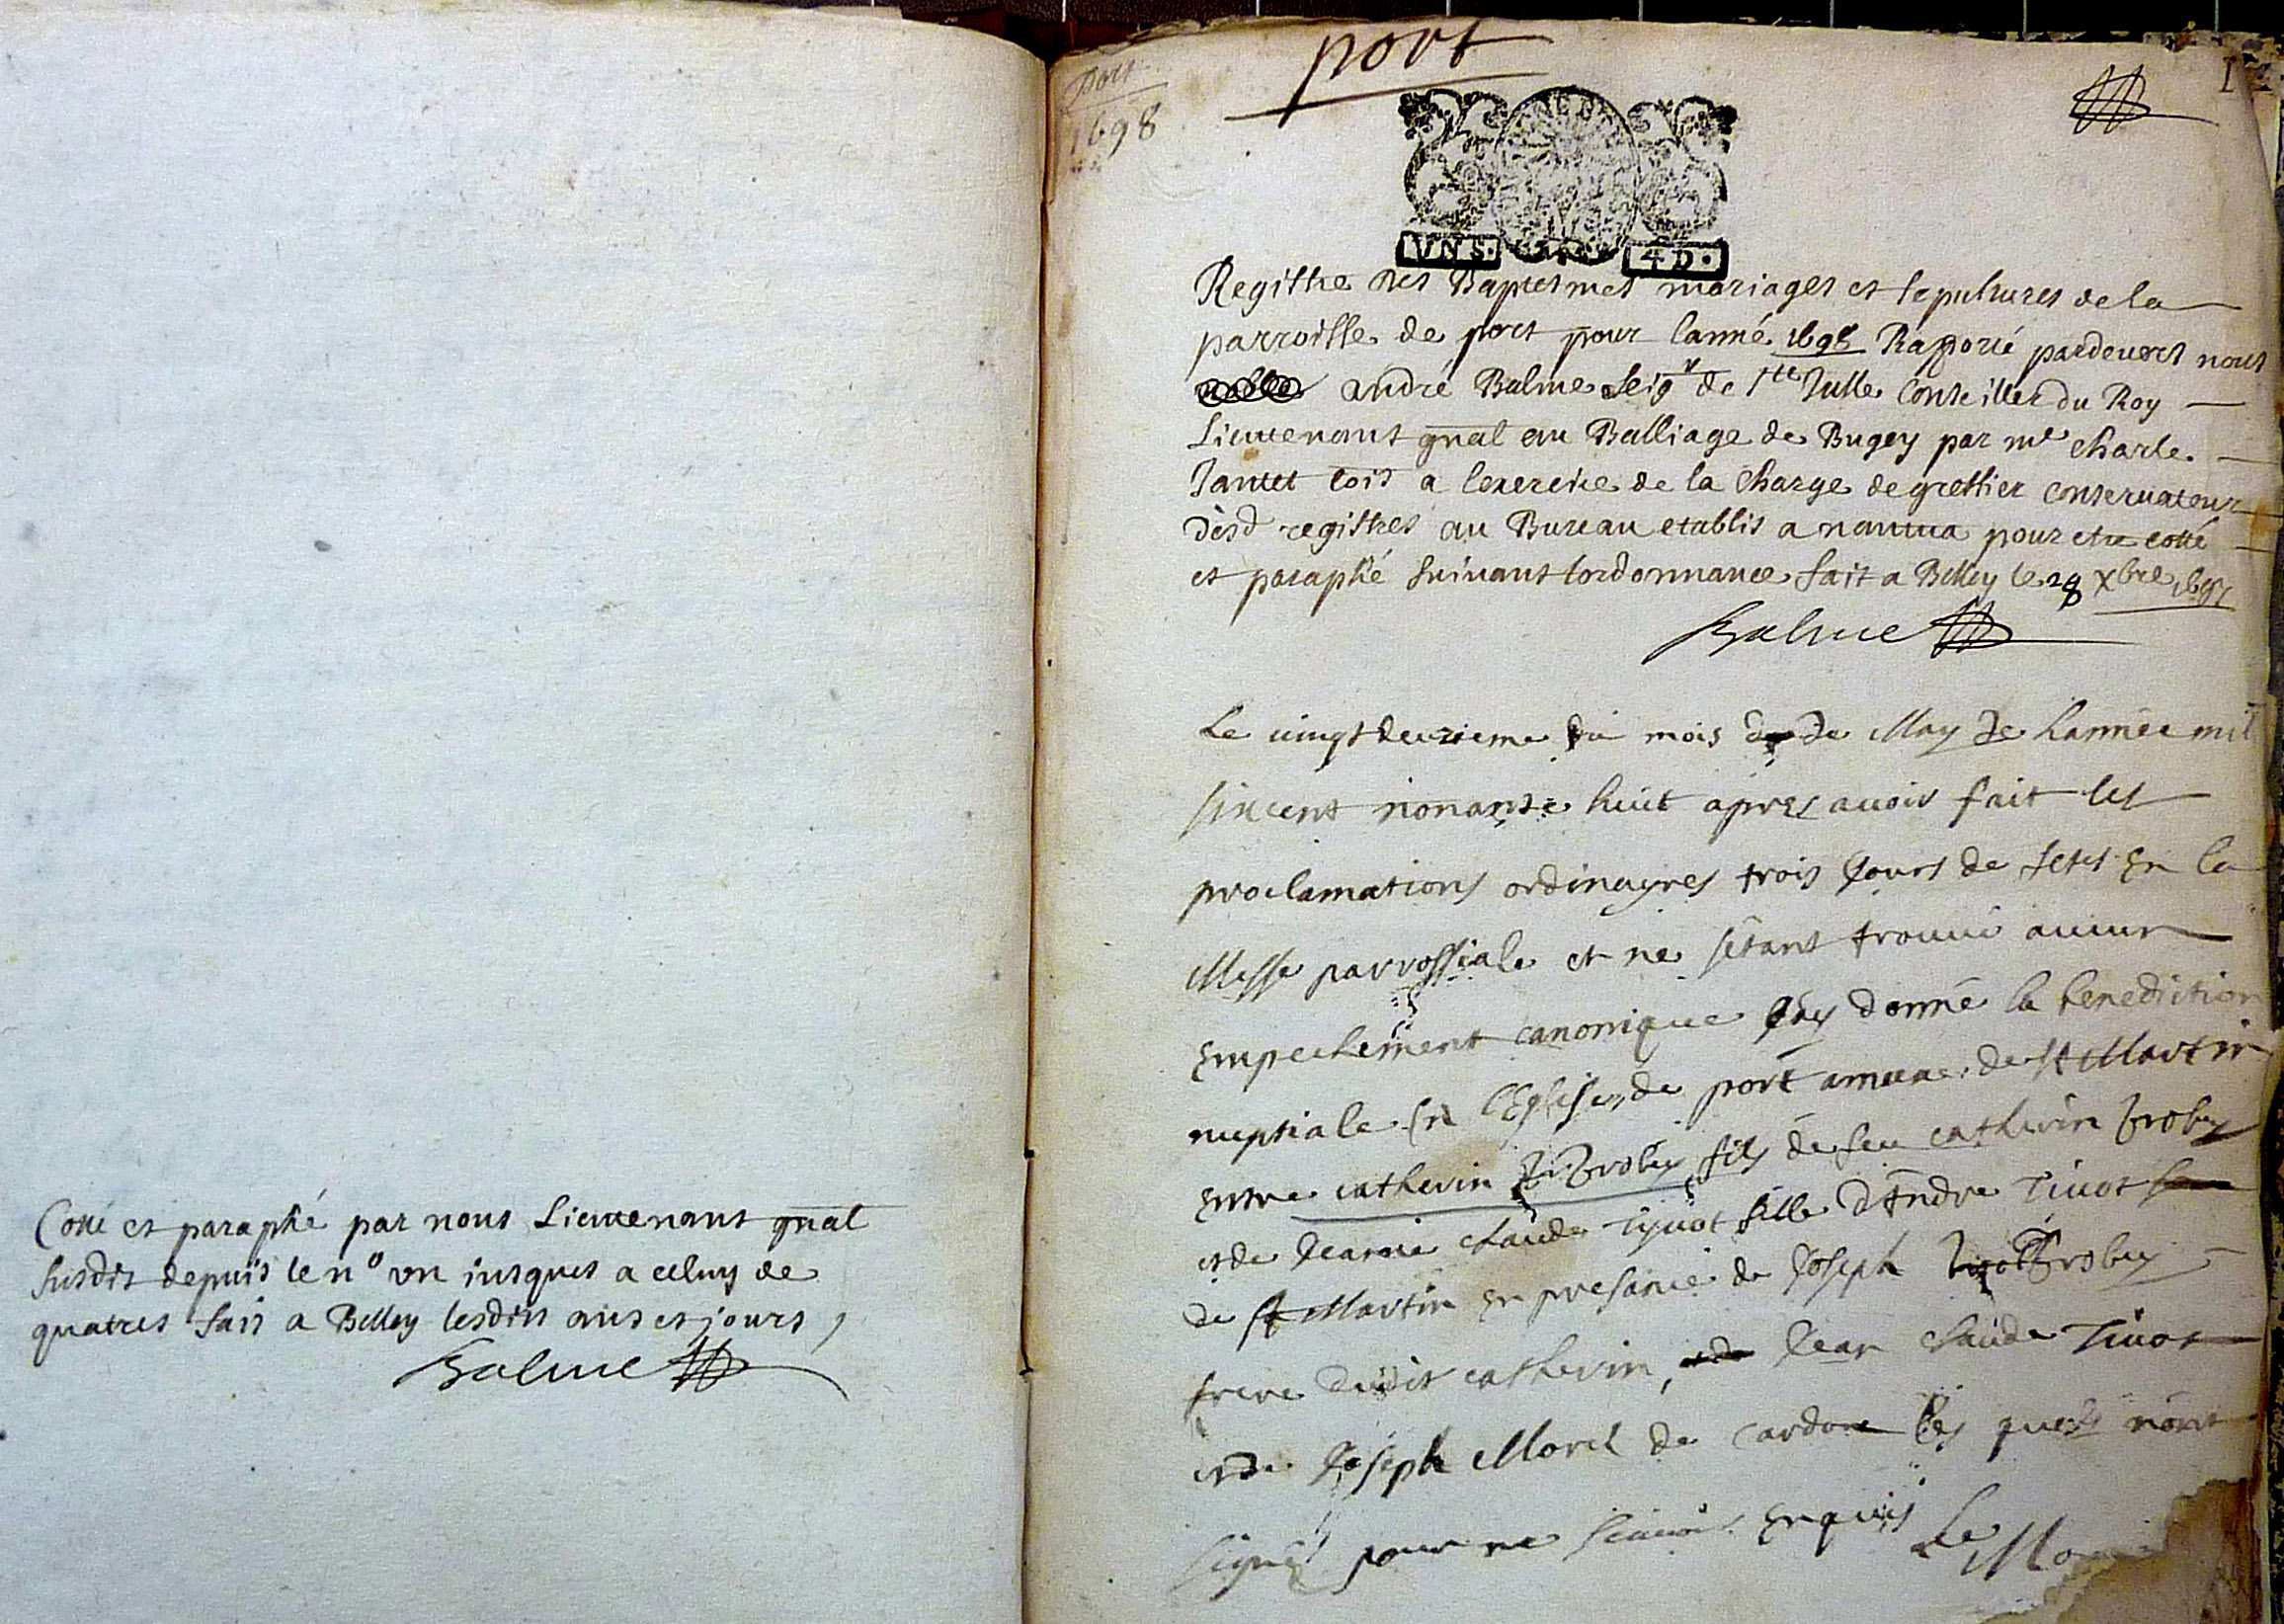 Cotté et paraphé par nous Lieutenant gnal
susdit depuis le n° un iusques a celuy de
quatres fait a Belley lesdits ans et jours,
Balme
port
1698
port
I
VN S.
4 D.
Registre des Baptesmes mariages et sepultures de la
parroisse de port pour lanné 1698 Raporté pardeuers nous
andré Balme Seigr de Ste Julle Conseiller du Roy
Lieutenant gnal au Balliage de Bugey par me charle
Jantet a lexercice de la charge de greffier conseruateur
desd registres au Bureau etablis a nantua pour etre cotté
et paraphé suiuant lordonnance fait a Belley le 28 xbre 1697
Balme
Le uingt deuzieme du mois de May de Lannée mil
sixcent nonante huit apres auoir fait les
proclamations ordinayres trois Jours de fetes En la
Messe parrossiale et ne sétant trouué aucun
Empechement canonique Jay donné la benediction
nuptiale En l'Eglise de port annexe de st Martin
Entre catherin Brobuy fils de feu catherin Brobuy
et de Jeanne claude Tiuot fille dAndre Tiuot
de st Martin En presance de Joseph Brobuy
frere dudit catherin, Jean claude Tiuot
et de Joseph Morel de cardon les quels nont
signés pour ne scauoir Enquis